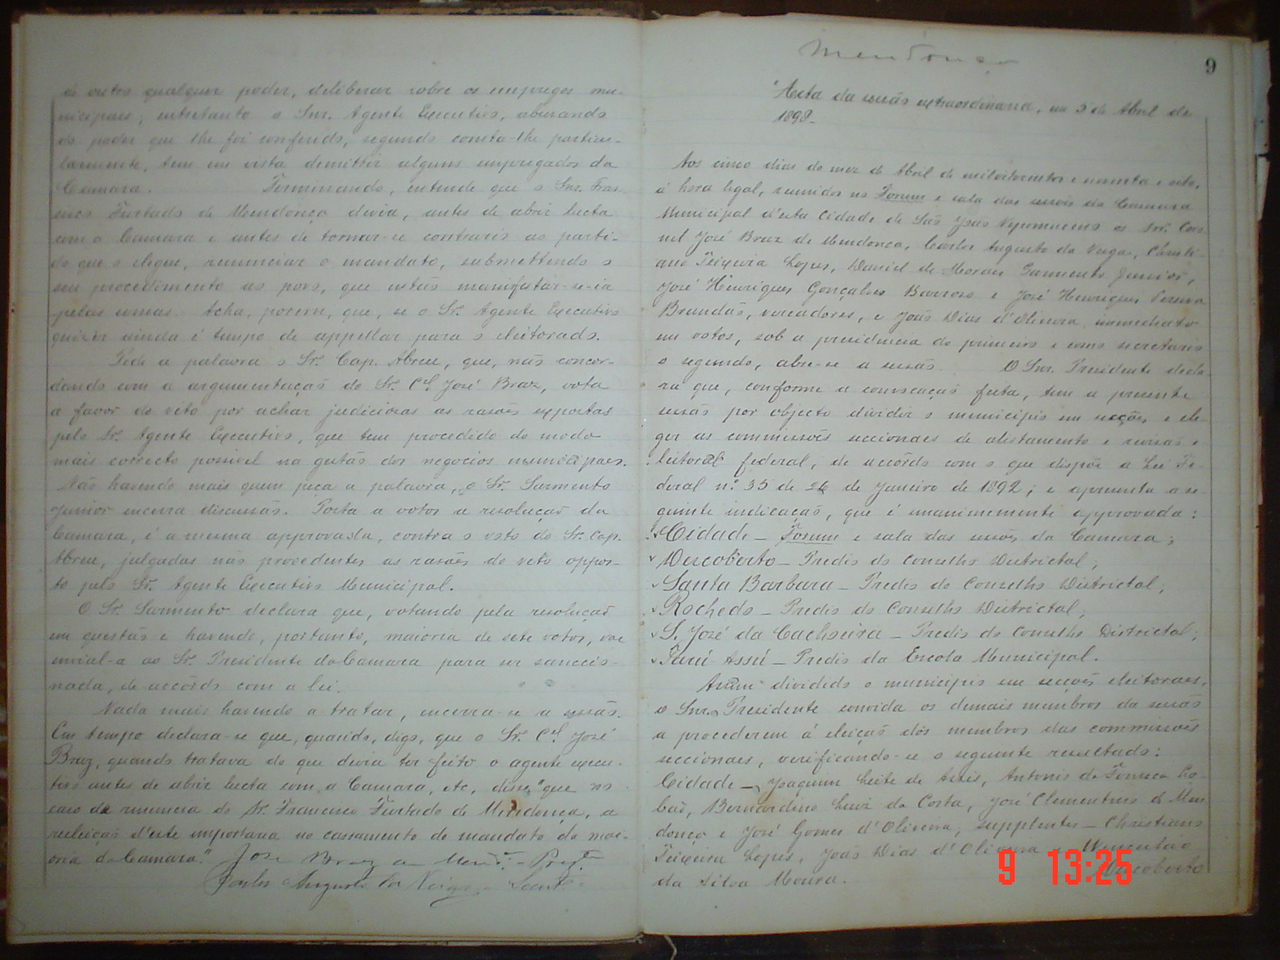 é outro qualquer poder, deliberar sobre os empregos mu-
nicipaes; entretanto o Snr. Agente Executivo, abusando
do poder que lhe foi conferido, segundo consta-lhe particu-
larmente, tem em vista demittir alguns empregados da
Camara. Terminando, entende que o Snr. Fran-
cisco Furtado de Mendonça devia, antes de abrir lucta
com a Camara e antes de tornar-se contrario ao parti-
do que o elegeu, renunciar o mandato, submettendo o
seu procedimento ao povo, que então manifestar-se-ia
pelas urnas. Acha, porem, que, se o Sr. Agente Executivo
quizer ainda é tempo de appellar para o eleitorado.
Pede a palavra o Sr. Cap. Abreu, que, não concor-
dando com a argumentação do Sr. Cel. José Braz, vota
a favor do véto por achar judiciosas as rasões expostas
pelo Sr. Agente Executivo, que tem procedido do modo
mais correcto possivel na gestão dos negocios municipaes.
Não havendo mais quem peça a palavra, o Sr. Sarmento
Junior encerra discussão. Posta a votos a resolução da
Camara, é a mesma approvada, contra o voto do Sr. Cap.
Abreu, julgadas não procedentes as rasões do veto oppos-
to pelo Sr. Agente Executivo Municipal.
O Sr. Sarmento declara que, votando pela resolução
em questão e havendo, portanto, maioria de sete votos, vae
envial-a ao Sr. Presidente da Camara para ser sanccio-
nada, de accôrdo com a lei.
Nada mais havendo a tratar, encerra-se a sessão.
Em tempo declara-se que, quando, digo, que o Sr. Cel. José
Braz, quando tratava do que devia ter feito o agente execu-
tivo antes de abrir lucta com a Camara, etc, disse "que no
caso da renuncia do Sr. Francisco Furtado de Mendonça, a
reeleição d'este importaria no cassamento do mandato da mai-
oria da Camara."
José Braz de Mendça. Presite
Carlos Augusto da Veiga
Mendonça
9
Acta da sessão extraordinaria, em 5 de Abril de
1898.
Aos cinco dias do mez de Abril de mil oitocentos e noventa e oito,
á hora legal, reunidos no Forum e sala das sessões da Camara
Municipal d'esta Cidade de São João Nepomuceno os Srs. Coro-
nel José Braz de Mendonça, Carlos Augusto da Veiga, Christi-
ano Teixeira Lopes, Daniel de Moraes Sarmento Junior,
José Henriques Gonçalves Barroso e José Henriques Pereira
Brandão, vereadores, e João Dias d'Oliveira immediato
em votos, sob a presidencia do primeiro e como secretario
o segundo, abre-se a sessão. O Snr. Presidente decla-
ra que, conforme a convocação feita, tem a presente
sessão por objecto dividir o municipio em secções, e ele-
ger as commissões seccionaes de alistamento e revisão e-
leitoral federal, de accôrdo com o que dispõe a Lei Fe-
deral n.º 35 de 26 de Janeiro de 1892; e apresenta a se-
guinte indicação, que é unanimemente approvada:
Cidade — Forum e sala das sessões da Camara;
Descoberto — Predio do Conselho Districtal;
Santa Barbara — Predio do Conselho Districtal;
Rochedo — Predio do Conselho Districtal;
S. José da Cachoeira — Predio do Conselho Districtal;
Taru-Assú — Predio da Escola Municipal.
Assim dividido o municipio em secções eleitoraes,
o Snr. Presidente convida os demais membros da sessão
a procederem á eleição dos membros das commissões
seccionaes, verificando-se o seguinte resultado:
Cidade — Joaquim Leite de Assis, Antonio da Fonseca Lo-
bão, Bernardino Luiz da Costa, José Clementino de Men-
donça e José Gomes d'Oliveira; supplentes — Christiano
Teixeira Lopes, João Dias d'Oliveira e Wenceslau
da Silva Moura. Descoberto
9 13:25